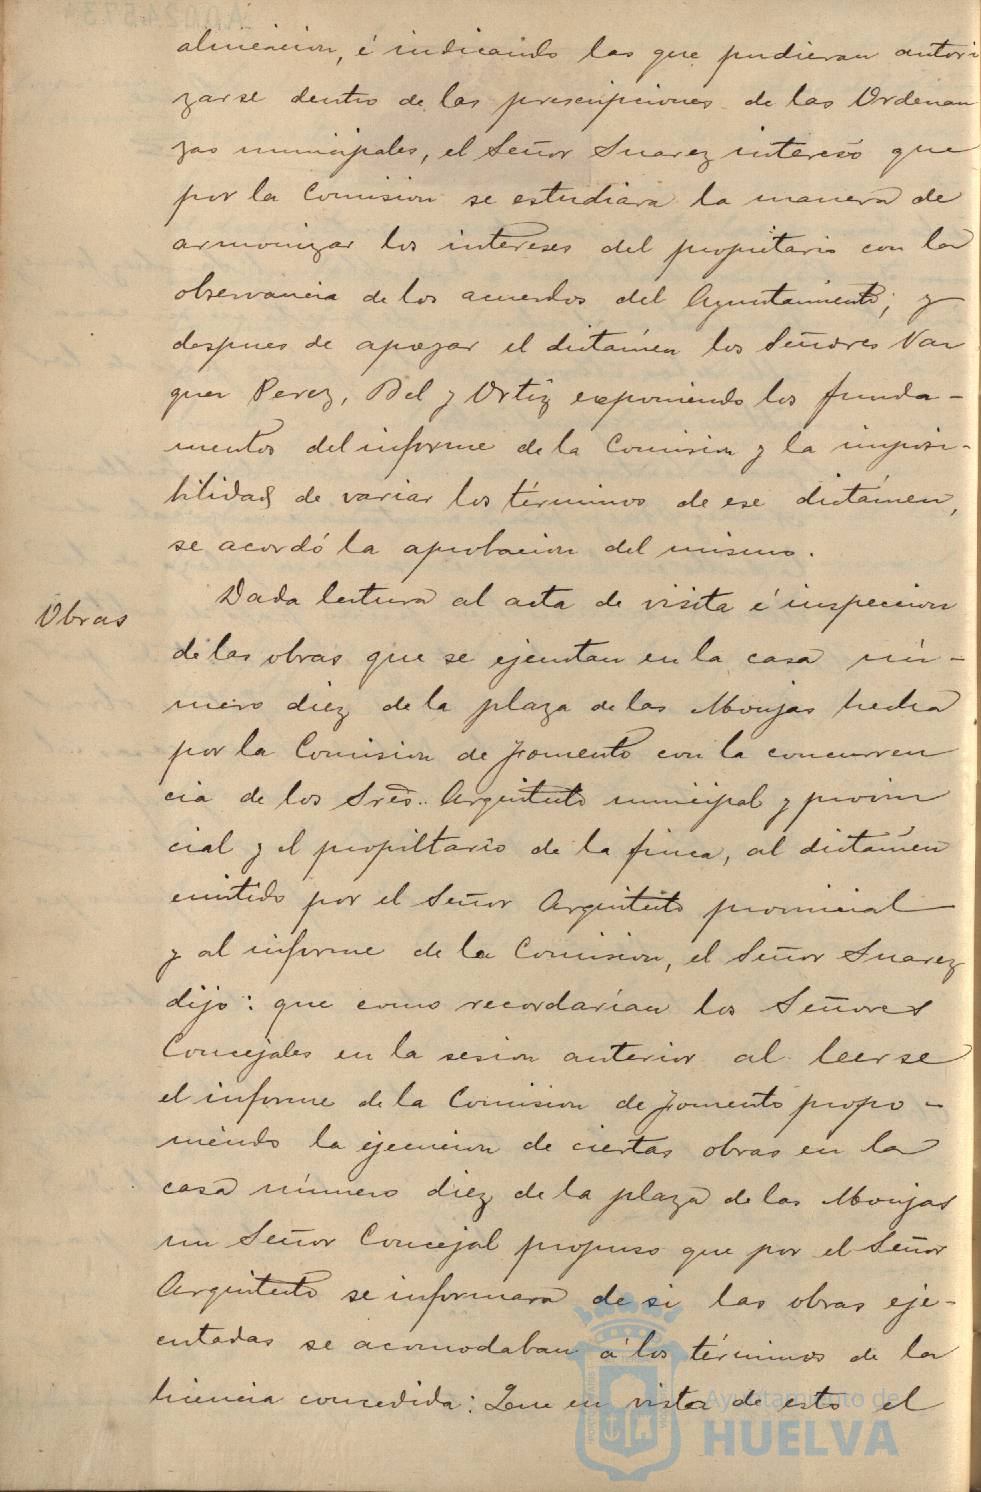 alineacion, é indicando las que pudieran autori
zarse dentro de las prescripciones de las Ordenan
zas municipales, el Señor Suarez interesó que
por la Comision se estudiara la manera de
armonizar los intereses del propietario con la
observancia de los acuerdos del Ayuntamiento; y
despues de apoyar el dictámen los Señores Vaz
quez Perez, Bel y Ortiz exponiendo los funda-
mentos del informe de la Comision y la imposi-
bilidad de variar los términos de ese dictámen,
se acordó la aprobacion del mismo.
Obras
Dada lectura al acta de visita é inspeccion
de las obras que se ejecutan en la casa nú-
mero diez de la plaza de las Monjas hecha
por la Comision de Fomento con la concurren
cia de los Sres. Arquitecto municipal y provin
cial y el propiltario de la finca, al dictámen
emitido por el Señor Arquitecto provincial
y al informe de la Comision, el Señor Suarez
dijo: que como recordarían los Señores
Concejales en la sesion anterior al leerse
el informe de la Comision de Fomento propo-
niendo la ejecucion de ciertas obras en la
casa número diez de la plaza de las Monjas
un Señor Concejal propuso que por el Señor
Arquitecto se informara de si las obras eje-
cutadas se acomodaban á los términos de la
licencia concedida: Que en vista de esto el
Ayuntamiento de
HUELVA